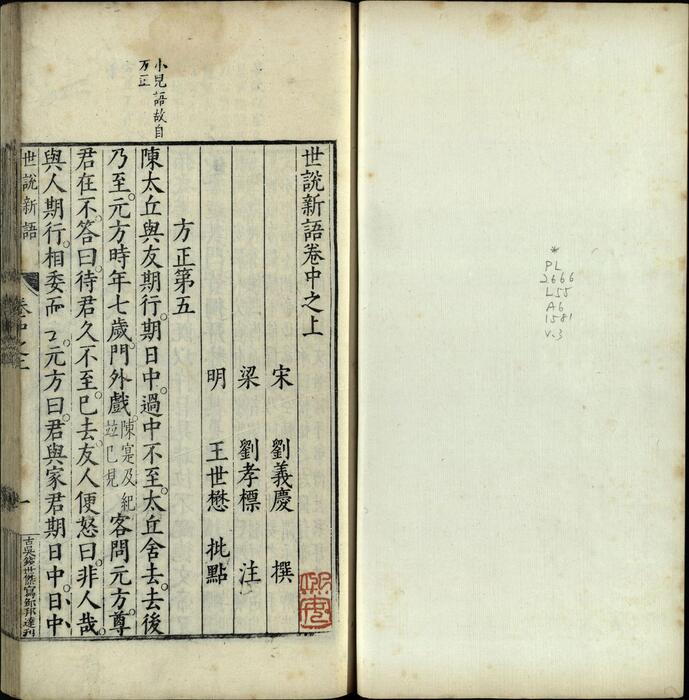 世說新語卷中之上
宋 劉義慶 撰
梁 劉孝標 注
明 王世懋 批點
方正第五
小兒語故自
方正
陳太丘與友期行。期日中。過中不至。太丘舍去。去後
乃至。元方時年七歲。門外戲。陳寔及紀並已見客問元方。尊
君在不。答曰。待君久不至。已去。友人便怒曰。非人哉。
與人期行。相委而去。元方曰。君與家君期日中。日中
世說新語
卷中之上
一
* PL
2666
L55
A6
1581
v.3